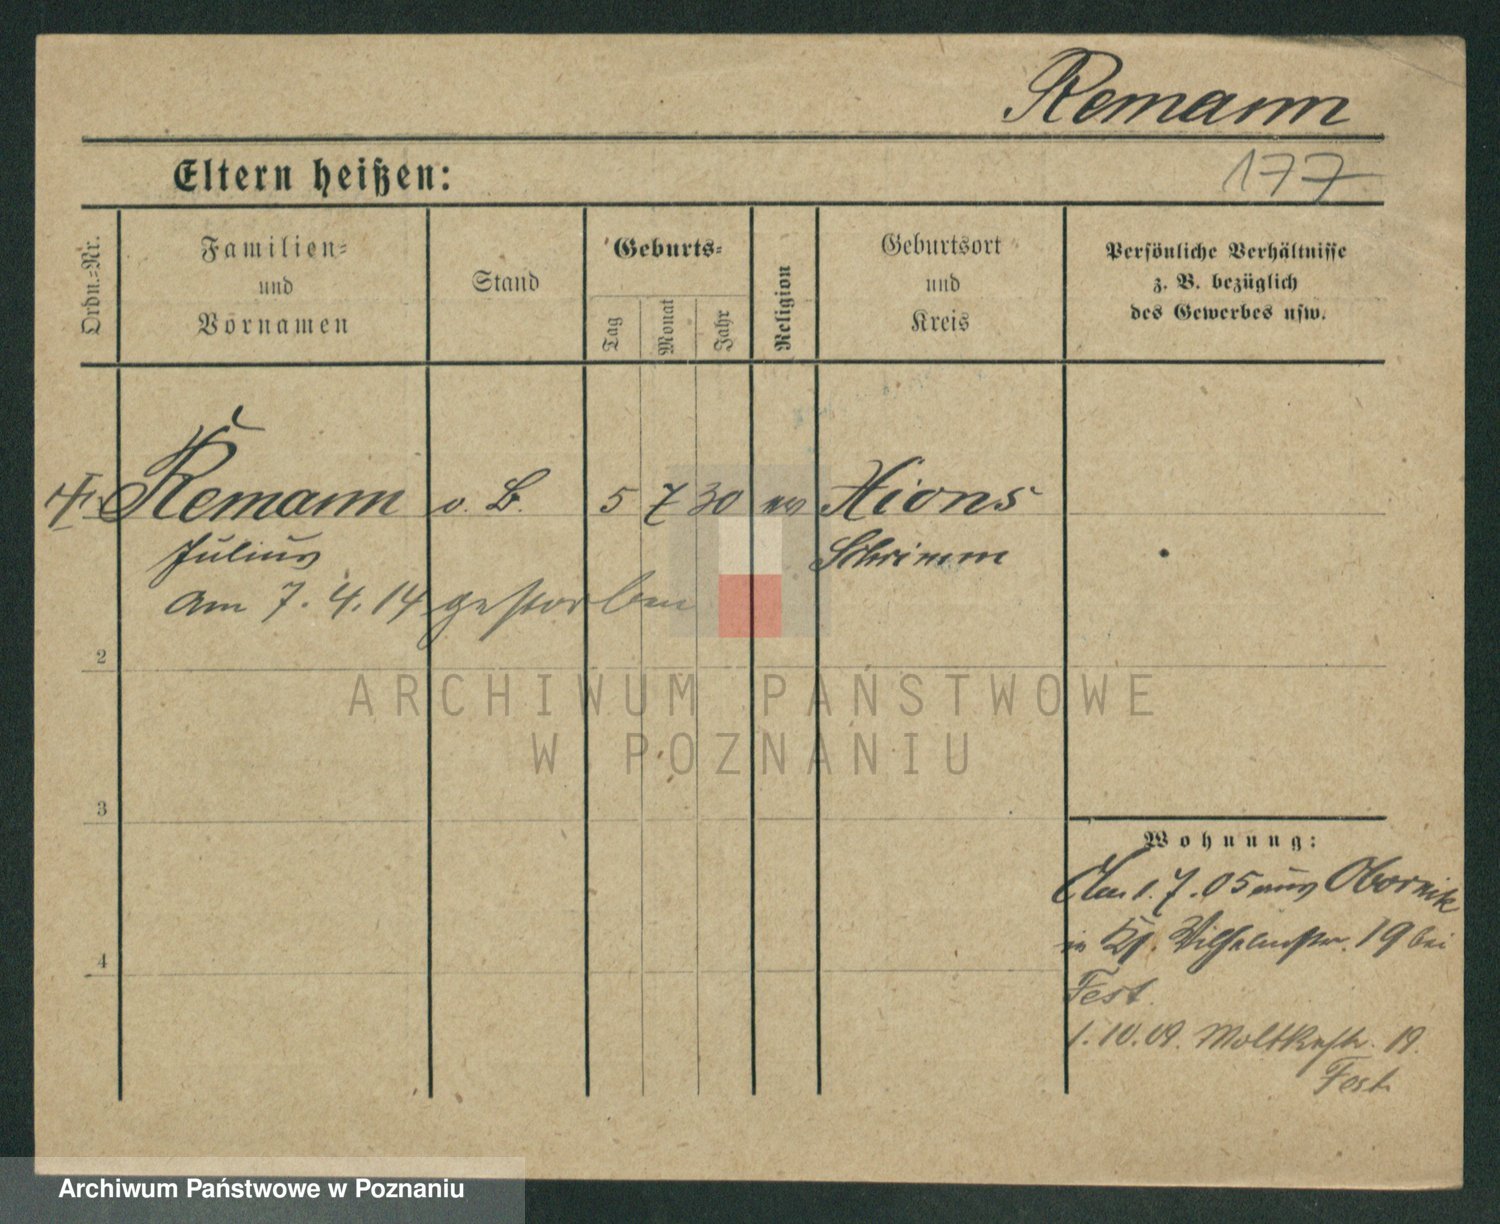 Remann
177
Eltern heißen:
Ordn.=Nr.
Familien=
und
Vornamen
Stand
Geburts=
Tag
Monat
Jahr
Religion
Geburtsort
und
Kreis
Persönliche Verhältnisse
z. B. bezüglich
des Gewerbes usw.
Remann o. B. 5 7 30 Xions
Julius Schrimm
am 7. 4. 14 gestorben
2
3
4
Wohnung:
Am 1. 7. 05 aus Obornik
in Wilhelmstr. 19 bei
Fest.
1. 10. 09. Moltkestr. 19.
Fest
ARCHIWUM PAŃSTWOWE
W POZNANIU
Archiwum Państwowe w Poznaniu